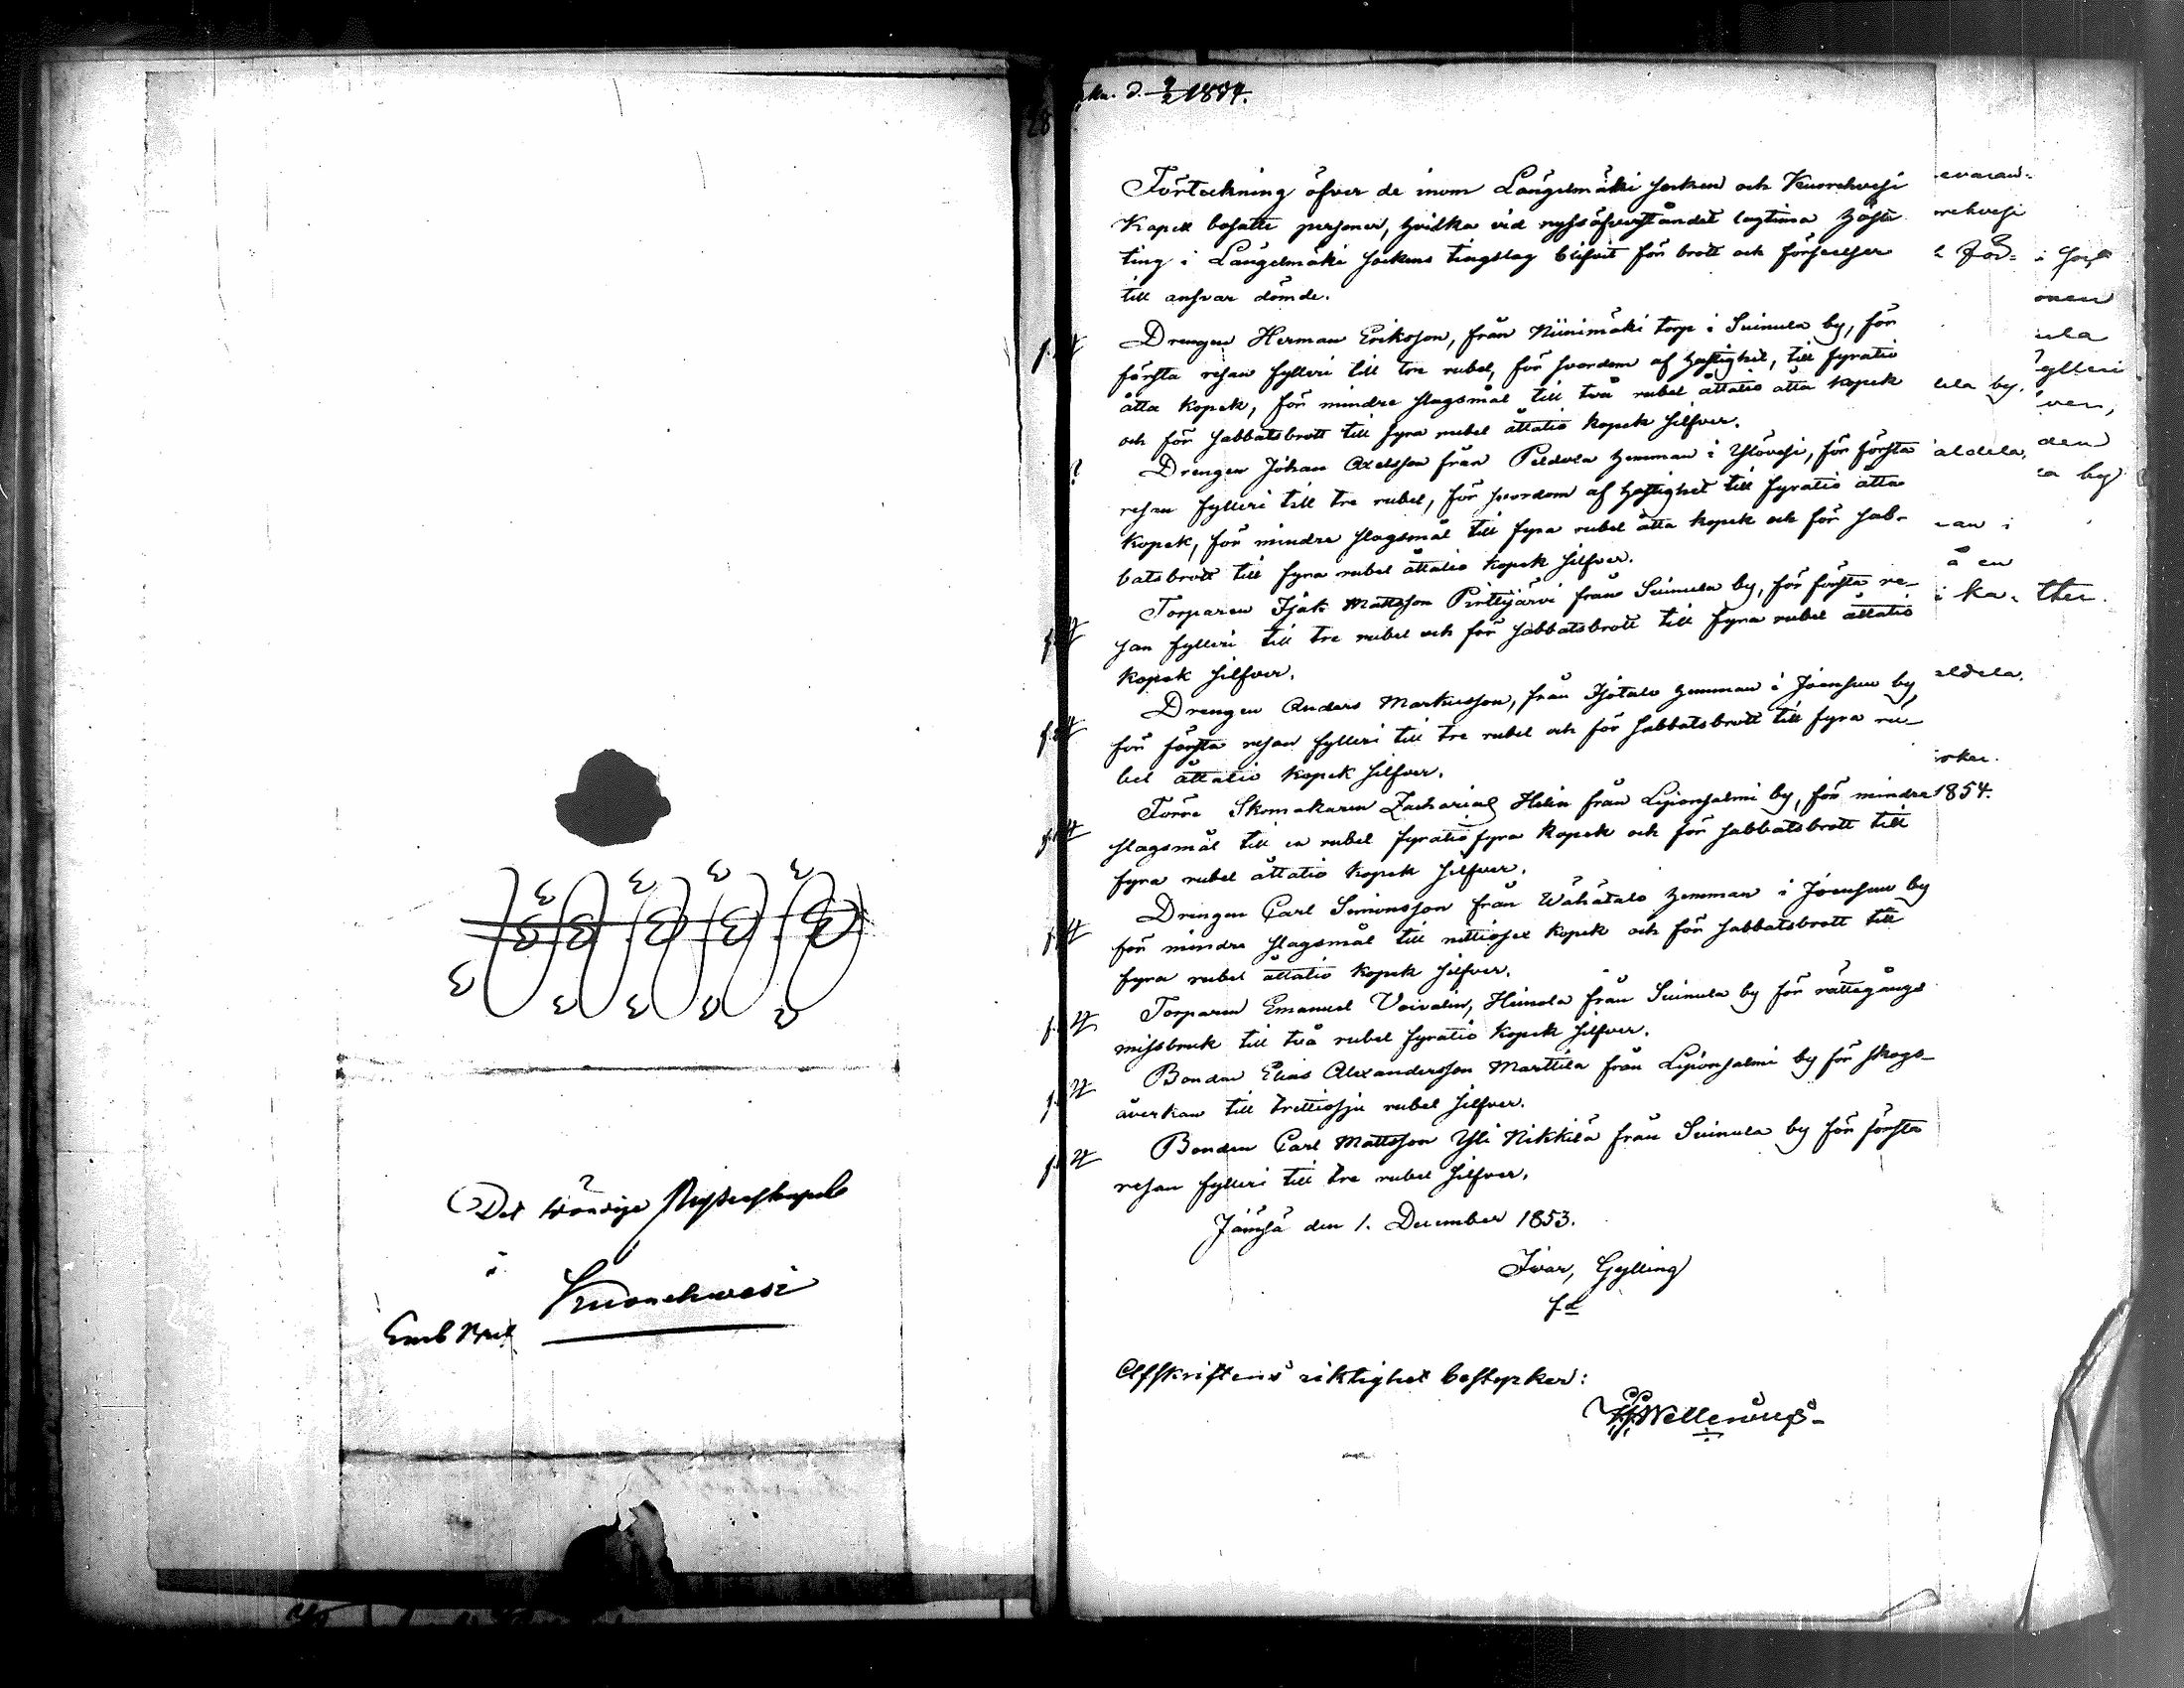 Det wördige Pastorskapet
i
Kuorehwesi
Emb Bref
d. 9/2 1854.
Förteckning öfver de inom Längelmäki socken och Kuorehvesi
Kapell bosatte personer, hvilka vid nyssöfverståndet lagtima Höste
ting i Längelmäki sockens tingslag blifvit för brott och förseelser
till ansvar dömde.
Drengen Herman Eriksson, från Niinimäki torp i Suinula by, för
första resan fylleri till tre rubel, för svordom af hastighet, till fyratio
åtta kopek, för mindre slagsmål till två rubel åttatio åtta kopek
och för sabbatsbrott till fyra rubel åttatio kopek silfver.
Drengen Johan Axelsson från Peldola hemman i Ylövesi, för första
resan fylleri till tre rubel, för svordom af hastighet till fyratio åtta
kopek, för mindre slagsmål till fyra rubel åtta kopek och för sab-
batsbrott till fyra rubel åttatio kopek silfver.
Torparen Isak Mattsson Pirttijärvi från Suinula by, för första re-
san fylleri till tre rubel och för sabbatsbrott till fyra rubel åttatio
kopek silfver.
Drengen Anders Markusson, från Isotalo hemman i Joensuu by
för första resan fylleri till tre rubel och för sabbatsbrott till fyra ru-
bel åttatio kopek silfver.
Förre Skomakaren Zacharias Helin från Leppionsalmi by, för mindre
slagsmål till en rubel fyratiofyra kopek och för sabbatsbrott till
fyra rubel åttatio kopek silfver.
Drengen Carl Simonsson från Wähätalo hemman i Joensuu by
för mindre slagsmål till nittiosex kopek och för sabbatsbrott till
fyra rubel åttatio kopek silfver.
Torparen Emanuel Voivalin, Heinola från Suinula by för rättegångs
missbruk till två rubel fyratio kopek silfver.
Bonden Elias Alexandersson Marttila från Leppionsalmi by för skogs-
åverkan till trettiosju rubel silfver.
Bonden Carl Mattsson Yli Nikkilä från Suinula by för första
resan fylleri till tre rubel silfver.
Jämsä den 1. December 1853.
Ivar, Gylling
Afskriftens riktighet bestyrker: